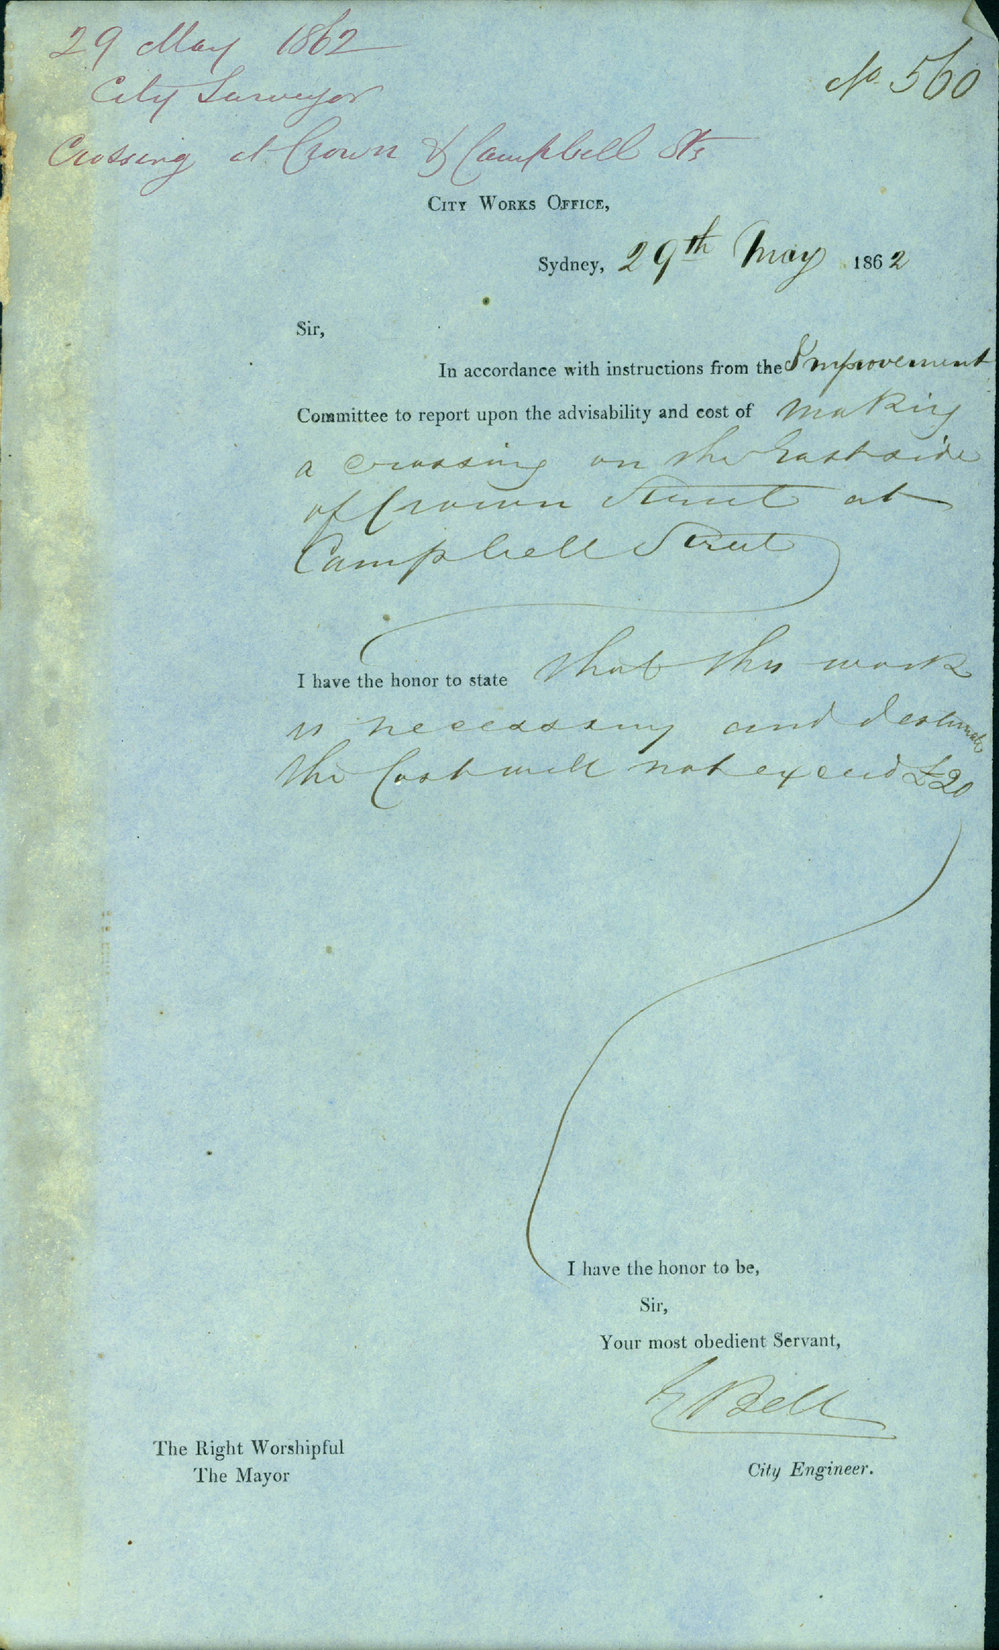 29 May 1862
City Surveyor
No 560
Crossing at Crown & Campbell Sts
City Works Office,
Sydney, 29th May 1862
Sir,
In accordance with instructions from the Improvement
Committee to report upon the advisability and cost of making
a crossing on the East side
of Crown Street at
Campbell Street
I have the honor to state that this work
is necessary and I estimate
the Cost will not exceed £20
I have the honor to be,
Sir,
Your most obedient Servant,
E Bell
The Right Worshipful
The Mayor
City Engineer.